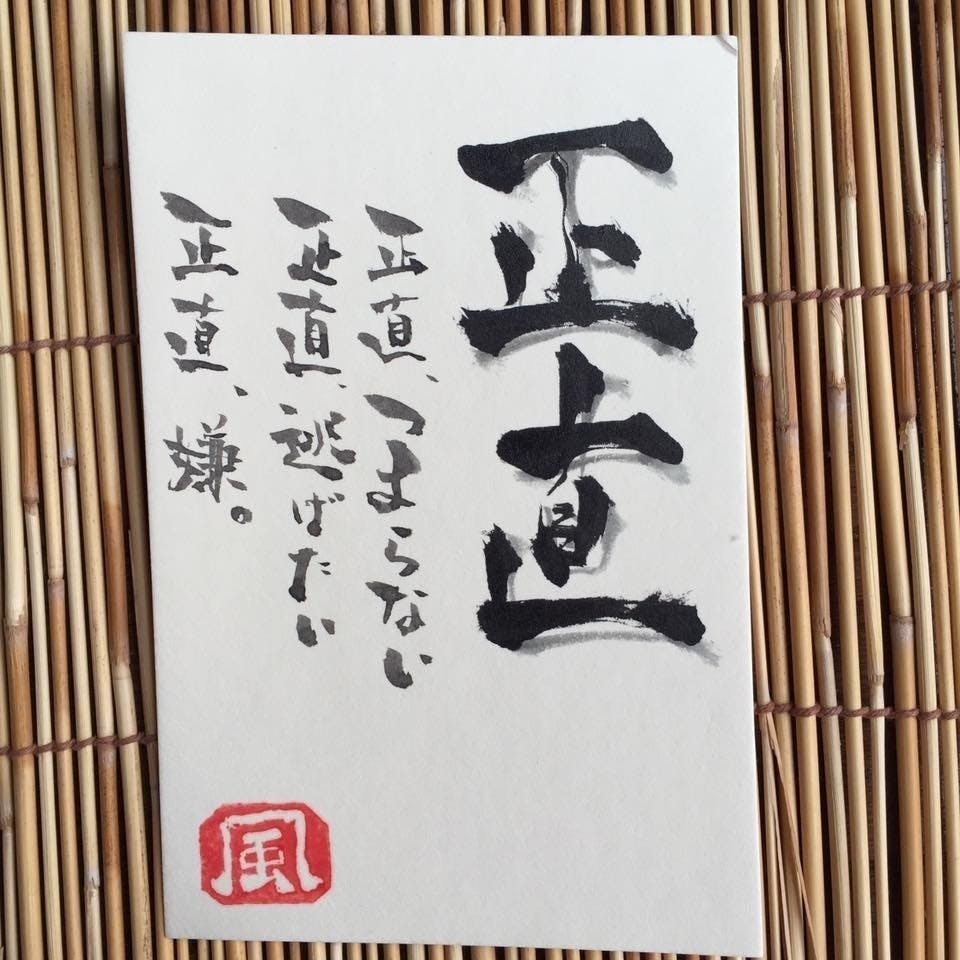 正直
正直、つまらない
正直、逃げたい
正直、嫌。
風